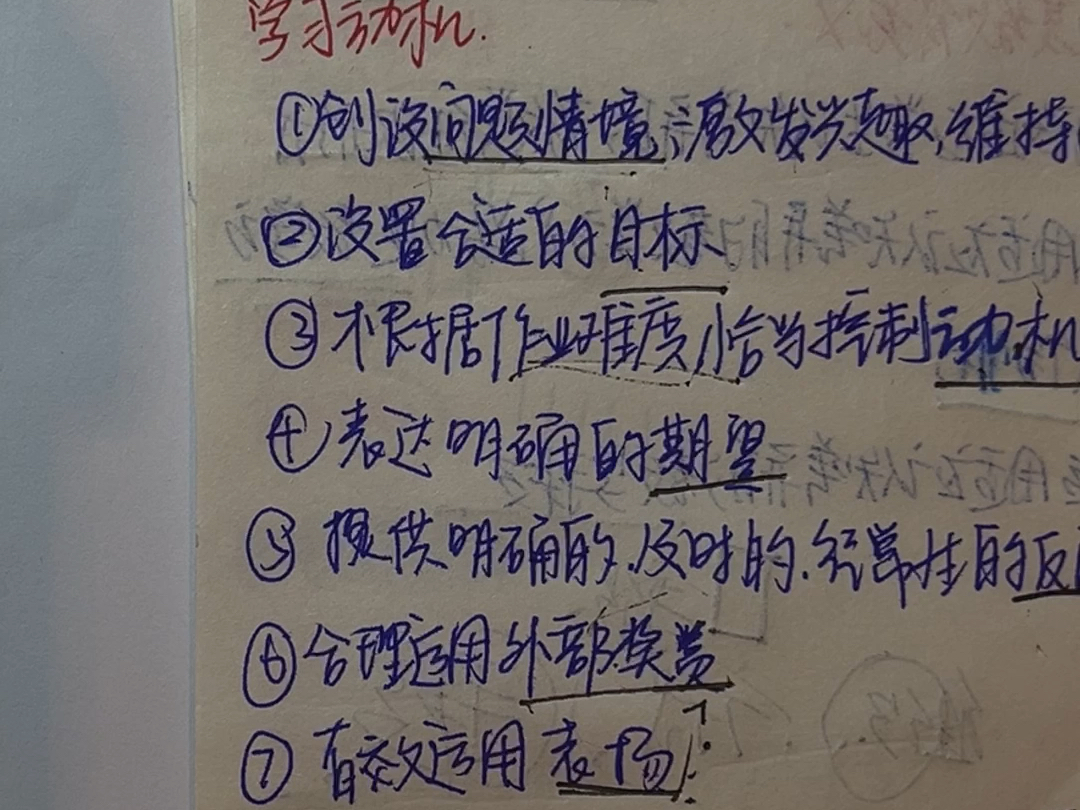 学习动机.
①创设问题情境，激发兴趣，维持
②设置合适的目标
③根据作业难度，恰当控制动机
④表达明确的期望
⑤提供明确的、及时的、经常性的反
⑥合理运用外部奖赏
⑦有效运用表扬